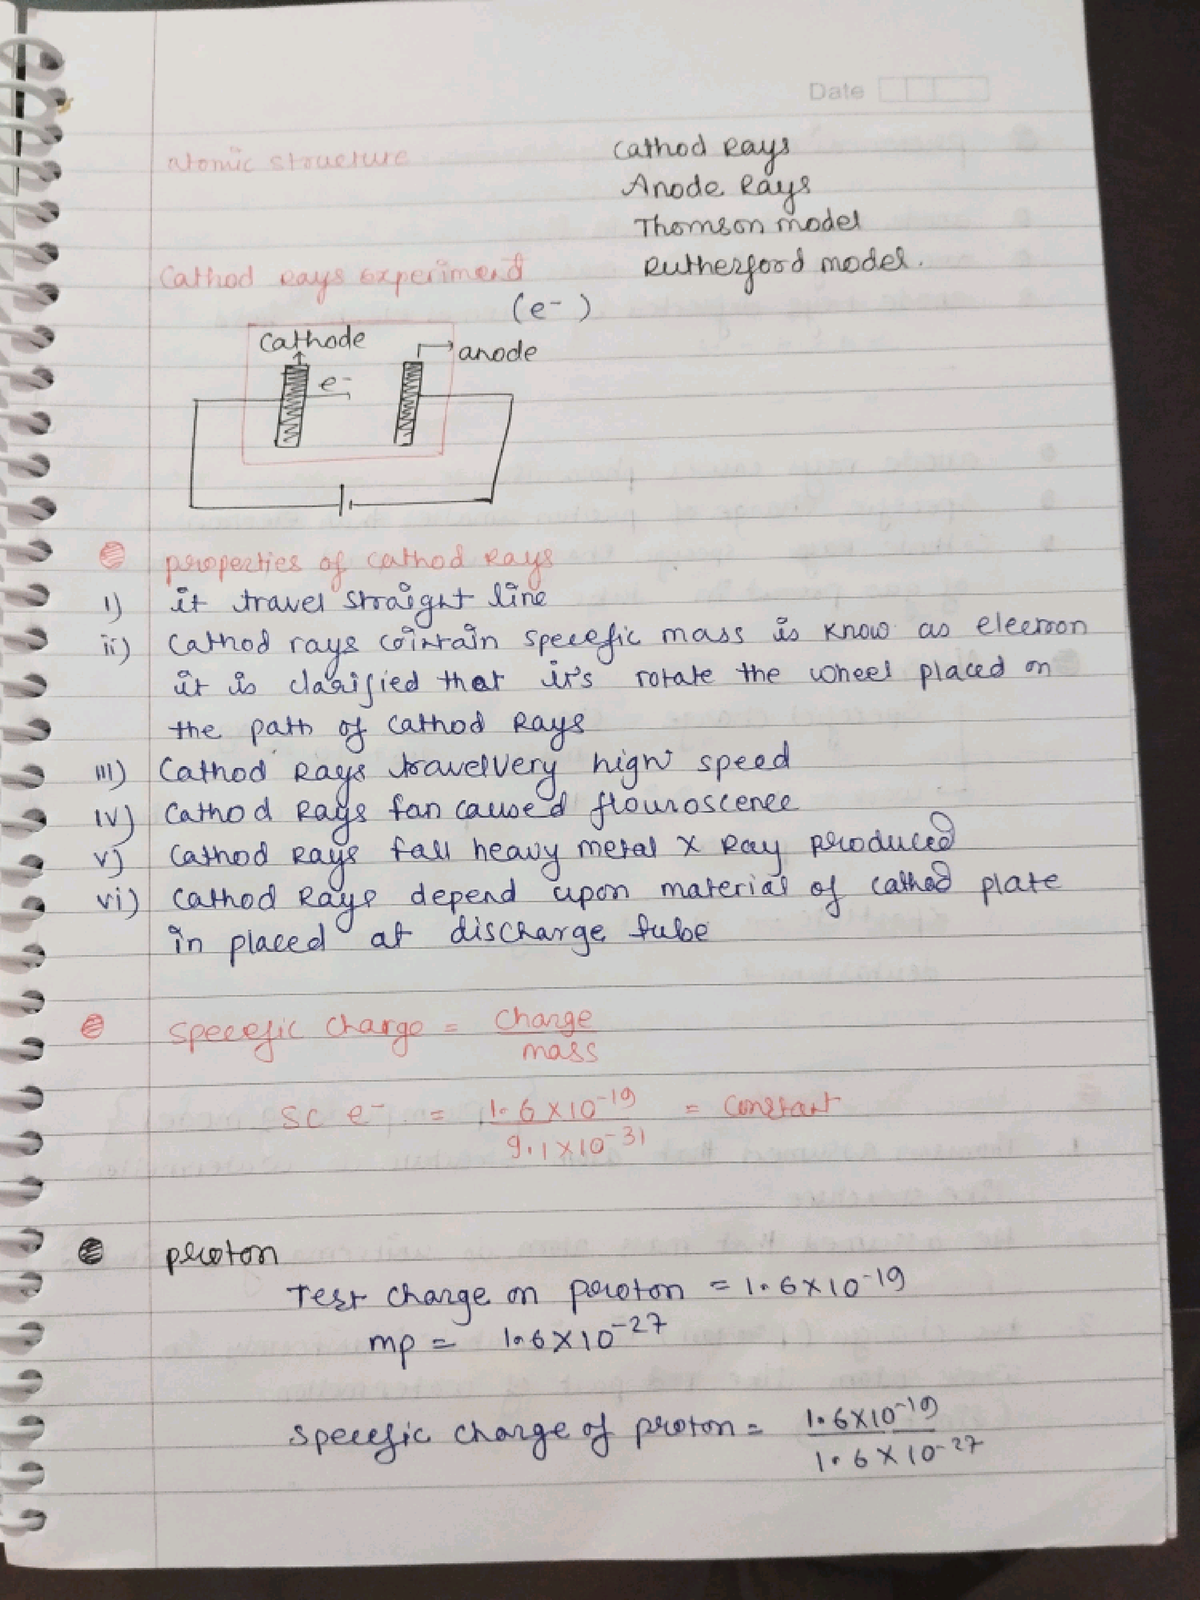 Date
atomic structure
Cathod Rays
Anode Rays
Thomson model
Rutherford model.
Cathod Rays experiment
(e-)
cathode
anode
e-
properties of cathod Rays
i) it travel straight line
ii) Cathod rays cointain specefic mass is know as elecron
it is clarified that it's rotate the wheel placed on
the path of cathod Rays
iii) Cathod Rays travel very high speed
iv) Cathod Rays fan caused flouroscence
v) Cathod Rays fall heavy metal X Ray produced
vi) Cathod Rays depend upon material of cathod plate
in placed at discharge tube
Specefic Charge = Charge
mass
SC e- = 1.6 × 10-19 = Constant
9.1 × 10-31
proton
Test charge on proton = 1.6 × 10-19
mp = 1.6 × 10-27
Specefic charge of proton = 1.6 × 10-19
1.6 × 10-27